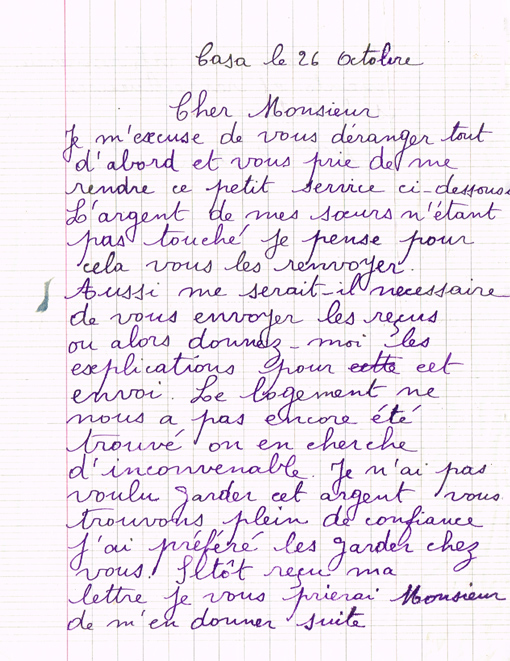 Casa le 26 Octobre
Cher Monsieur
Je m'excuse de vous déranger tout
d'abord et vous prie de me
rendre ce petit service ci-dessous
L'argent de mes sœurs n'étant
pas touché je pense pour
cela vous les renvoyer.
Aussi me serait-il necessaire
de vous envoyer les reçus
ou alors donnez-moi les
explications pour cette cet
envoi. Le logement ne
nous a pas encore été
trouvé on en cherche
d'inconvenable. Je n'ai pas
voulu garder cet argent vous
trouvons plein de confiance
j'ai préféré les garder chez
vous. Sitôt reçu ma
lettre je vous prierai Monsieur
de m'en donner suite